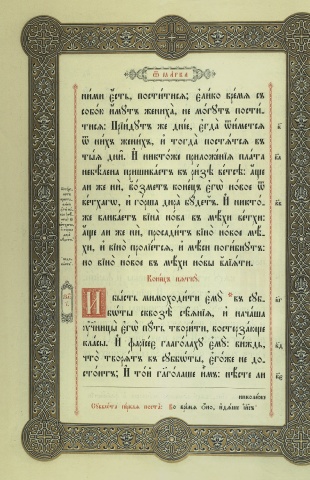 Ѿ ма́рка
ни́ми є҆́сть, пости́тисѧ; є҆ли́ко вре́мѧ съ
собо́ю и҆́мꙋтъ жениха̀, не мо́гꙋтъ пости́-
тисѧ: прїи́дꙋтъ же дні́е, є҆гда̀ ѿи́метсѧ
ѿ ни́хъ жени́хъ, и҆ тогда̀ постѧ́тсѧ въ
ты̑ѧ дни̑. И҆ никто́же приложе́нїѧ пла́та
небѣ́лена пришива́етъ къ ри́зѣ ве́тсѣ: а҆́ще
ли же нѝ, во́зметъ коне́цъ є҆гѡ̀ но́вое ѿ
ве́тхагѡ, и҆ го́рша дира̀ бꙋ́детъ. И҆ никто́-
же влива́етъ вїна̀ но́ва въ мѣ́хи ве́тхи:
а҆́ще ли же нѝ, просади́тъ вїно̀ но́вое мѣ́-
хи, и҆ вїно̀ пролїе́тсѧ, и҆ мѣ́си поги́бнꙋтъ:
но вїно̀ но́вое въ мѣ́хи но́вы влїѧ́ти.
Коне́цъ пѧткꙋ̀
И҆ бы́сть мимоходи́ти є҆мꙋ̀ въ сꙋб-
бѡ́ты сквозѣ̀ сѣ̑ѧнїѧ, и҆ нача́ша
ᲂу҆чн҃цы̀ є҆гѡ̀ пꙋ́ть твори́ти, востерза́юще
кла́сы. И҆ фарїсе́є глаго́лахꙋ є҆мꙋ̀: ви́ждь,
что̀ творѧ́тъ въ сꙋббѡ́ты, є҆гѡ́же не до-
сто́итъ; И҆ то́й гл҃го́лаше и҆̀мъ: нѣ́сте ли
николи́же
Сꙋббѡ́та пе́рваѧ поста̀: Во вре́мѧ ѻ҆́но, и҆дѧ́ше і҆и҃съ